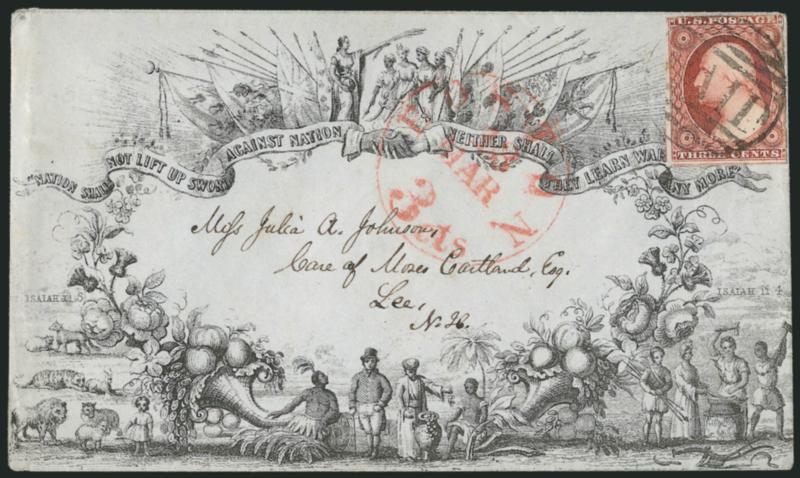 U.S. POSTAGE
THREE CENTS
"NATION SHALL NOT LIFT UP SWORD AGAINST NATION NEITHER SHALL THEY LEARN WAR ANY MORE"
MAR
3 cts
Miss Julia A. Johnson,
Care of Moses Cartland, Esq.
Lee,
N.H.
ISAIAH
ISAIAH